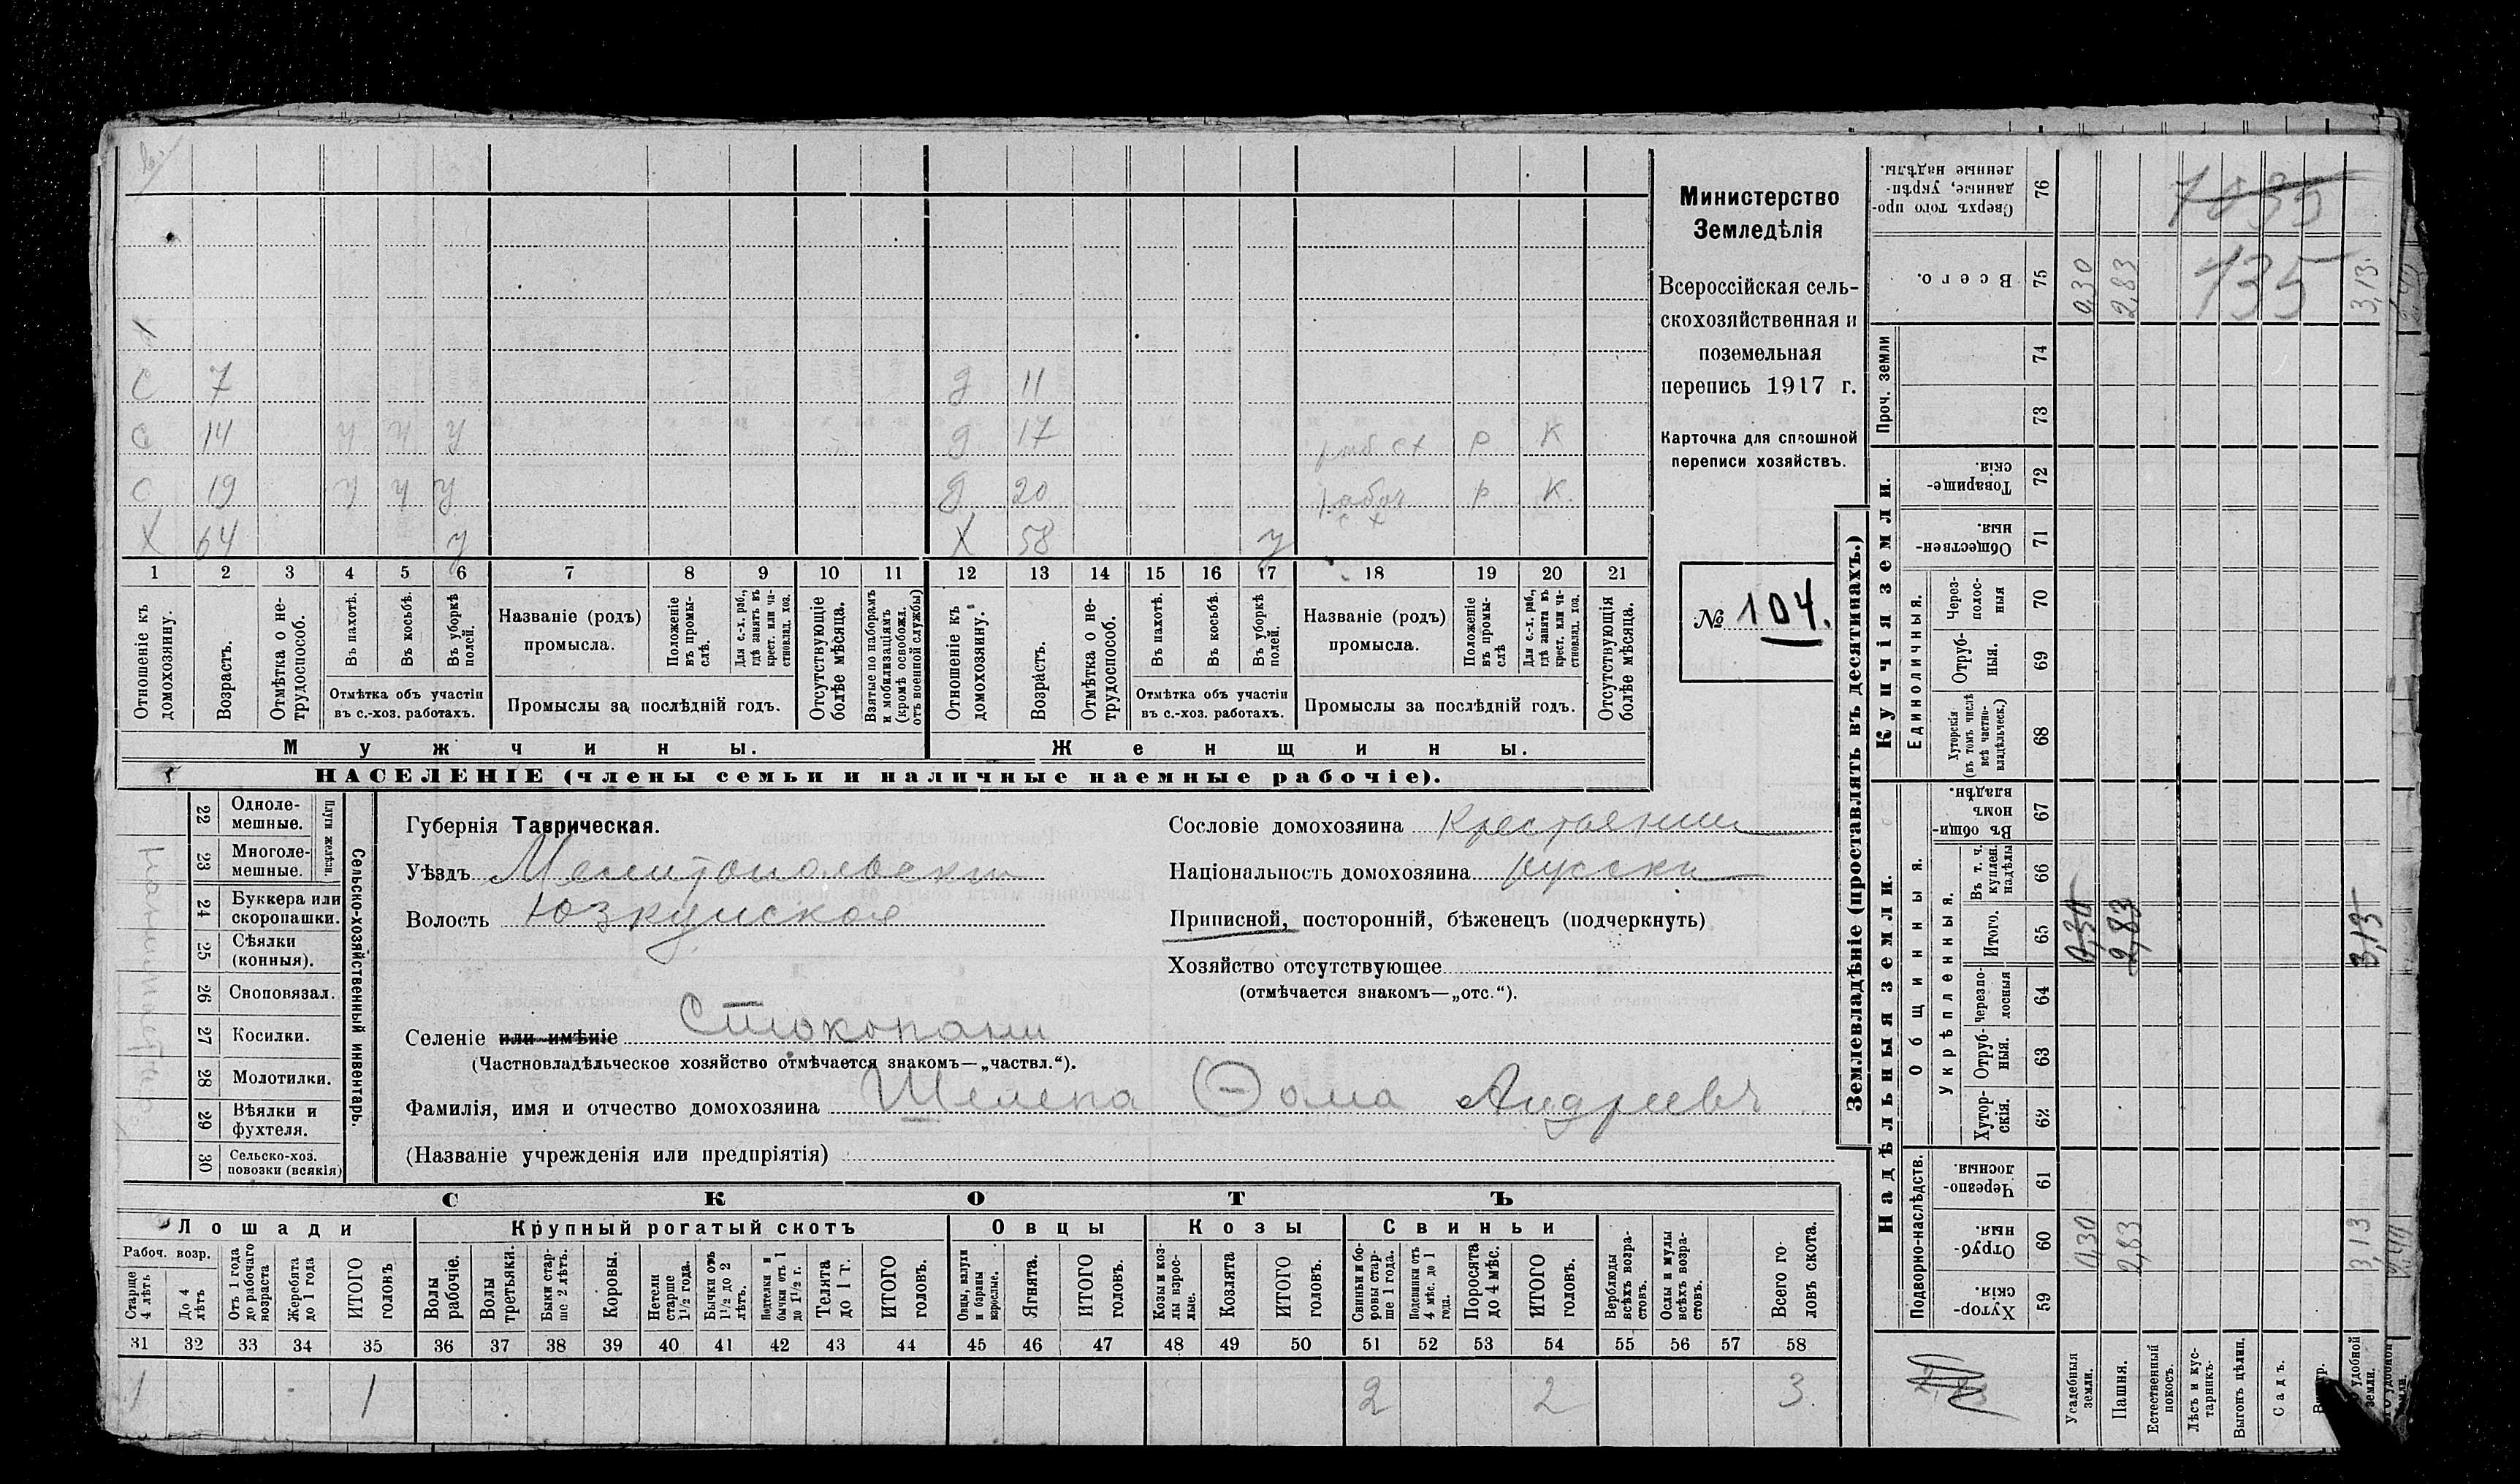 Министерство
Земледѣлія
Всероссійская сель-
скохозяйственная и
поземельная
перепись 1917 г.
Карточка для сплошной
переписи хозяйствъ.
№ 104.
С 7 д 11
С 14 у у у д 17 раб сх р К
С 19 у у у д 20 рабоч с х р К.
Х 64 у Х 58 у
1 2 3 4 5 6 7 8 9 10 11 12 13 14 15 16 17 18 19 20 21
Отношеніе къ домохозяину.
Возрастъ.
Отмѣтка о не-трудоспособ.
Въ пахотѣ.
Въ косьбѣ.
Въ уборкѣ полей.
Отмѣтка объ участіи въ с.-хоз. работахъ.
Названіе (родъ) промысла.
Положеніе въ промы-слѣ.
Для с.-х. раб., гдѣ занятъ въ крест. или ча-стновлад. хоз.
Промыслы за послѣдній годъ.
Отсутствующіе болѣе мѣсяца.
Взятые по наборамъ и мобилизаціямъ (кромѣ освобожд. отъ военной службы)
Отношеніе къ домохозяину.
Возрастъ.
Отмѣтка о не-трудоспособ.
Въ пахотѣ.
Въ косьбѣ.
Въ уборкѣ полей.
Отмѣтка объ участіи въ с.-хоз. работахъ.
Названіе (родъ) промысла.
Положеніе въ промы-слѣ
Для с.-х. раб., гдѣ занята въ крест. или ча-стновлад. хоз.
Промыслы за послѣдній годъ.
Отсутствующія болѣе мѣсяца.
Мужчины. Женщины.
НАСЕЛЕНІЕ (члены семьи и наличные наемные рабочіе).
Сельско-хозяйственный инвентарь.
Плуги желѣзн.
22 Одноле-мешные.
23 Многоле-мешные.
24 Буккера или скоропашки.
25 Сѣялки (конныя).
26 Сноповязал.
27 Косилки.
28 Молотилки.
29 Вѣялки и фухтеля.
30 Сельско-хоз. повозки (всякія)
Губернія Таврическая.
Уѣздъ Мелитопольскій
Волость Юзкуйская
Сословіе домохозяина Крестьянин
Національность домохозяина русски
Приписной, посторонній, бѣженецъ (подчеркнуть)
Хозяйство отсутствующее
(отмѣчается знакомъ—„отс.“).
Селеніе или имѣніе Стокопани
(Частновладѣльческое хозяйство отмѣчается знакомъ—„частвл.“).
Фамилія, имя и отчество домохозяина Шелепа Ѳома Андреевъ
(Названіе учрежденія или предпріятія)
СКОТЪ
Лошади Крупный рогатый скотъ Овцы Козы Свиньи
Рабоч. возр.
Старше 4 лѣтъ
До 4 лѣтъ
Отъ 1 года до рабочаго возраста
Жеребята до 1 года
ИТОГО головъ
Волы рабочіе.
Волы третьяки.
Быки стар-ше 2 лѣтъ.
Коровы.
Нетели старше 1½ года.
Бычки отъ 1½ до 2 лѣтъ.
Подтелки и бычки отъ 1 до 1½ г.
Телята до 1 г.
ИТОГО головъ.
Овцы, валухи и бараны взрослые.
Ягнята.
ИТОГО головъ.
Козы и коз-лы взрос-лые.
Козлята
ИТОГО головъ.
Свиньи и бо-ровы стар-ше 1 года.
Подсвинки отъ 4 мѣс. до 1 года.
Поросята до 4 мѣс.
ИТОГО головъ.
Верблюды всѣхъ возра-стовъ.
Ослы и мулы всѣхъ возра-стовъ.
Всего го-ловъ скота.
31 32 33 34 35 36 37 38 39 40 41 42 43 44 45 46 47 48 49 50 51 52 53 54 55 56 57 58
1 1 2 2 3.
Землевладѣніе (проставлять въ десятинахъ.)
Сверхъ того про-данные, укрѣп-ленные надѣлы. 76 1035
Всего. 75 0,30 2,83 135 3,13
Проч. земли 74
73
Купчія земли.
Товарище-скія. 72
Обществен-ныя. 71
Единоличныя.
Через-полос-ныя 70
Отруб-ныя. 69
Хуторскія (въ томъ числѣ всѣ частно-владѣльческ.) 68
Надѣльныя земли.
Общинныя.
Въ общин-номъ владѣн. 67
Укрѣпленныя.
Въ т. ч. куплен. надѣлы 66
Итого. 65 0,30 2,83 3,13
Черезпо-лосныя 64
Отруб-ныя. 63
Хутор-скія. 62
Подворно-наслѣдств.
Черезпо-лосныя. 61
Отруб-ныя. 60 0,30 2,83 3,13
Хутор-скія. 59
Усадебныя земли.
Пашня.
Естественный покосъ.
Лѣсъ и кус-тарникъ.
Выгонъ цѣлин.
Садъ.
удобной земли.